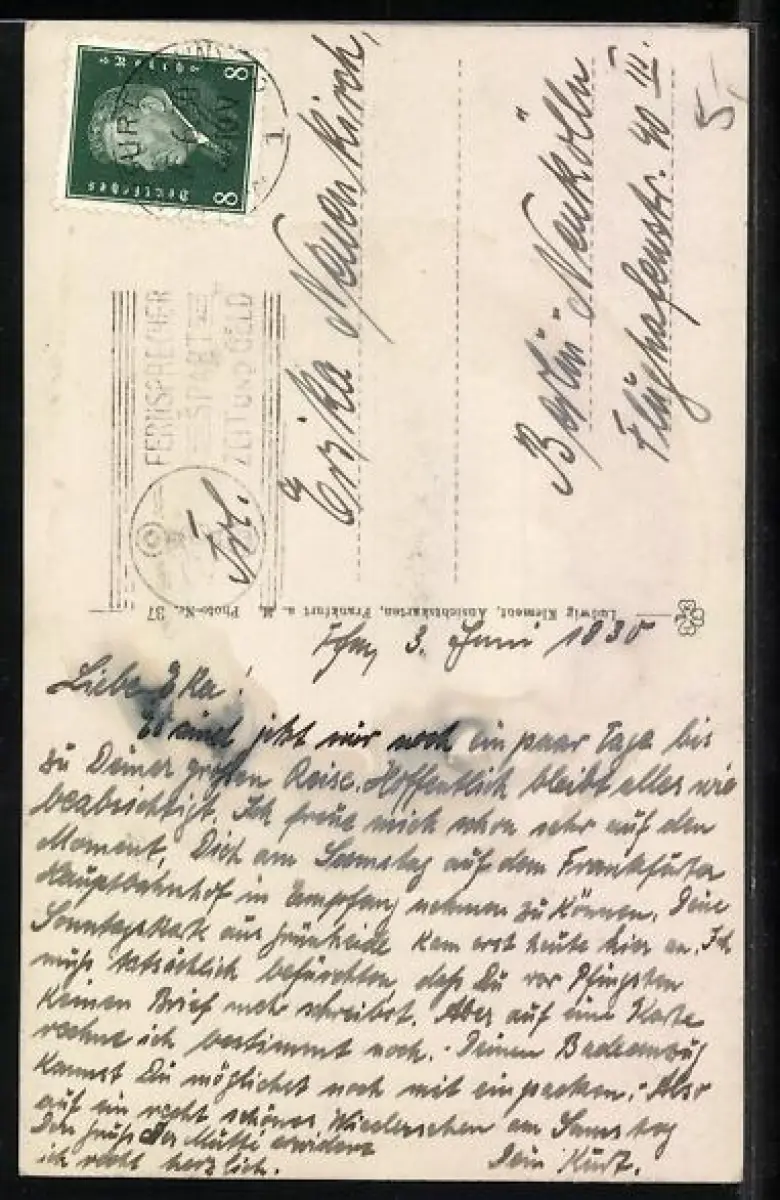 8 8
Deutsches
1
FERNSPRECHER
SPART
ZEIT UND GELD
5,-
Frl.
Erika Neuenkirch,
Berlin-Neukölln
Flughafenstr. 40 III.
Ludwig Klement, Ansichtskarten, Frankfurt a. M. Photo-Nr. 37
3. Juni 1930
Liebe Eka!
Es sind jetzt nur noch ein paar Tage bis
zu Deiner großen Reise. Hoffentlich bleibt alles wie
beabsichtigt. Ich freue mich schon sehr auf den
Moment, Dich am Samstag auf dem Frankfurter
Hauptbahnhof in Empfang nehmen zu können. Deine
Sonntagskarte aus Grünheide kam erst heute hier an. Ich
muß tatsächlich befürchten, daß Du vor Pfingsten
keinen Brief mehr schreibst. Aber auf eine Karte
rechne ich bestimmt noch. - Deinen Badeanzug
kannst Du möglichst noch mit einpacken. - Also
auf ein recht schönes Wiedersehen am Samstag
Den Gruß der Mutti erwidere
ich recht herzlich.
Dein Kurt.